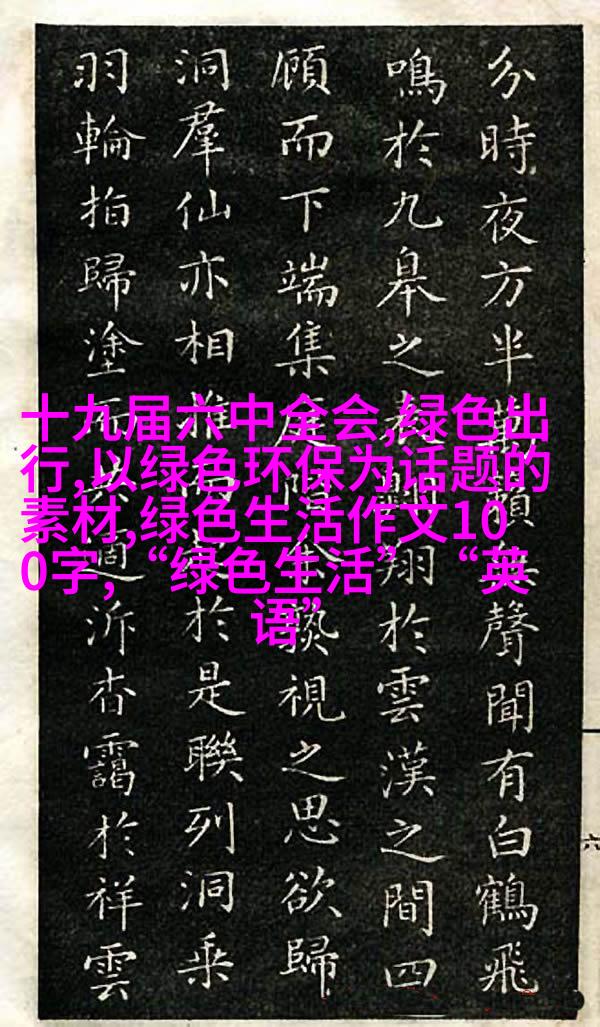 十九届六中全会,绿色出
行,以绿色环保为话题的
素材,绿色生活作文10
0字,“绿色生活”“英
语”
分時夜方半萬籟聲聞有白鶴飛
鳴於九皋之翔於雲漢之間四
顧而下端集視之思欲歸
洞羣仙亦相推於是聯列洞乘
羽輪拍歸塗而泝杳靄於祥雲
六